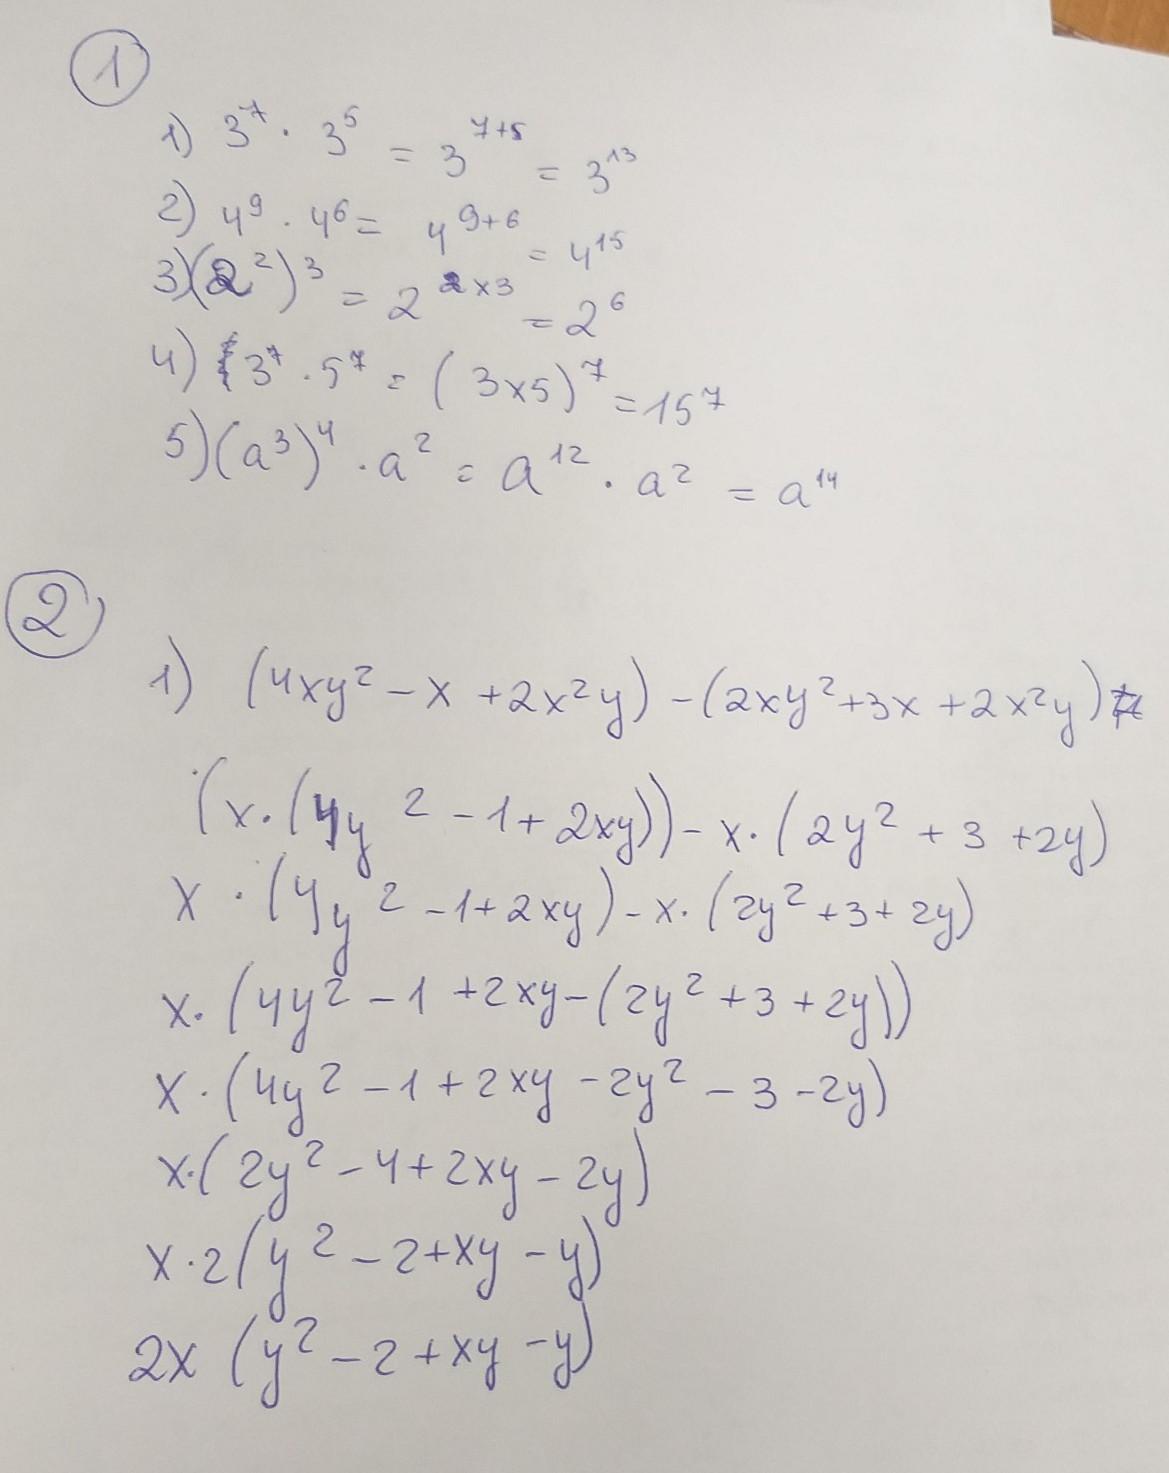 1
1) 3⁷ · 3⁵ = 3⁷⁺⁵ = 3¹³
2) 4⁹ · 4⁶ = 4⁹⁺⁶ = 4¹⁵
3) (2²)³ = 2²ˣ³ = 2⁶
4) 3⁷ · 5⁷ = (3x5)⁷ = 15⁷
5) (a³)⁴ · a² = a¹² · a² = a¹⁴
2
1) (4xy² - x + 2x²y) - (2xy² + 3x + 2x²y)
(x · (4y² - 1 + 2xy)) - x · (2y² + 3 + 2y)
x · (4y² - 1 + 2xy) - x · (2y² + 3 + 2y)
x · (4y² - 1 + 2xy - (2y² + 3 + 2y))
x · (4y² - 1 + 2xy - 2y² - 3 - 2y)
x · (2y² - 4 + 2xy - 2y)
x · 2(y² - 2 + xy - y)
2x (y² - 2 + xy - y)